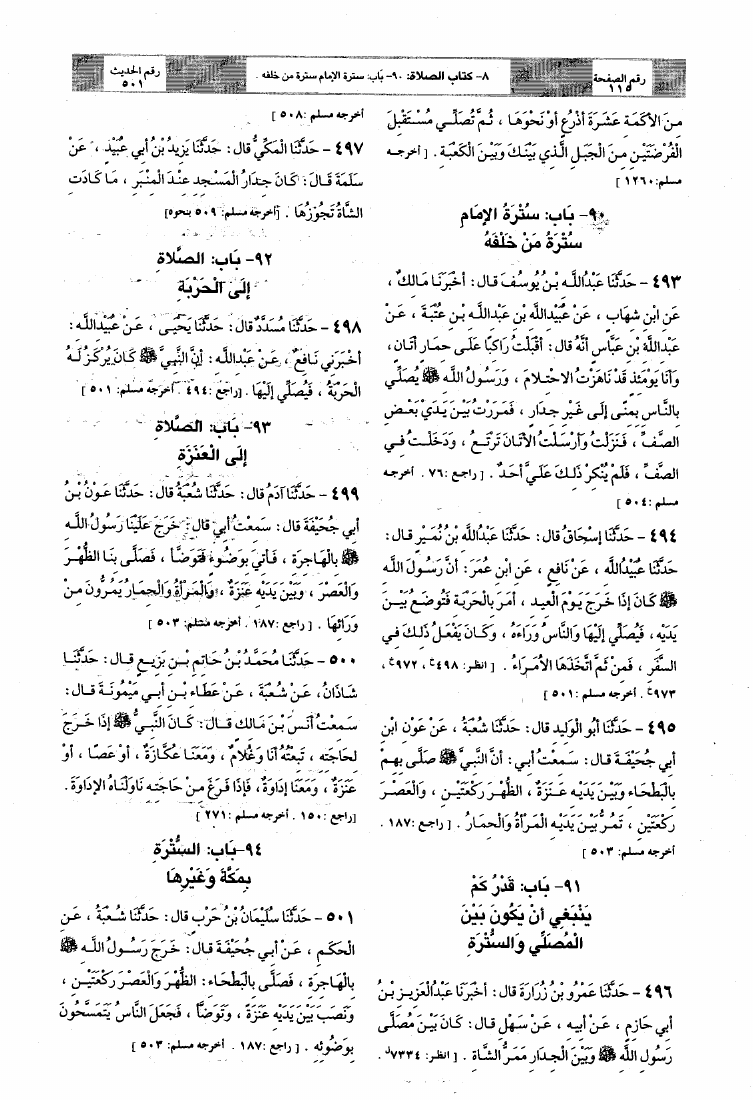 رقم الصفحة
١١٥
٨- كتاب الصلاة: ٩٠- باب: سترة الإمام سترة من خلفه .
رقم الحديث
٥٠١
مِنَ الأَكَمَةِ عَشَرَةَ أَذْرُعٍ أَوْ نَحْوَهَا ، ثُمَّ تُصَلِّي مُسْتَقْبِلَ
الْفُرْضَتَيْنِ مِنَ الْجَبَلِ الَّذِي بَيْنَكَ وَبَيْنَ الْكَعْبَةِ . [ أخرجه
مسلم: ١٢٦٠ ]
٩٠- بَاب: سُتْرَةُ الإِمَامِ
سُتْرَةُ مَنْ خَلْفَهُ
٤٩٣- حَدَّثَنَا عَبْدُاللَّه بْنُ يُوسُفَ قال: أَخْبَرَنَا مَالكٌ ،
عَنِ ابْنِ شِهَاب ، عَنْ عُبَيْدِاللَّه بْنِ عَبْدِاللَّه بْنِ عُتْبَةَ ، عَنْ
عَبْدِاللَّهِ بْنِ عَبَّاسٍ أَنَّهُ قال: أَقْبَلْتُ رَاكِبًا عَلَى حِمَارٍ أَتَانٍ ،
وَأَنَا يَوْمَئِذٍ قَدْ نَاهَزْتُ الاحْتِلامَ ، وَرَسُولُ اللَّه ﷺ يُصَلِّي
بِالنَّاسِ بِمِنًى إِلَى غَيْرِ جِدَارٍ ، فَمَرَرْتُ بَيْنَ يَدَيْ بَعْضِ
الصَّفِّ ، فَنَزَلْتُ وَأَرْسَلْتُ الأَتَانَ تَرْتَعُ ، وَدَخَلْتُ فِي
الصَّفِّ ، فَلَمْ يُنْكِرْ ذَلِكَ عَلَيَّ أَحَدٌ . [ راجع: ٧٦. أخرجه
مسلم: ٥٠٤ ]
٤٩٤- حَدَّثَنَا إِسْحَاقُ قال: حَدَّثَنَا عَبْدُاللَّه بْنُ نُمَيْرٍ قال:
حَدَّثَنَا عُبَيْدُاللَّه ، عَنْ نَافِعٍ ، عَنِ ابْنِ عُمَرَ: أَنَّ رَسُولَ اللَّه
ﷺ كَانَ إِذَا خَرَجَ يَوْمَ الْعِيدِ ، أَمَرَ بِالْحَرْبَةِ فَتُوضَعُ بَيْنَ
يَدَيْهِ، فَيُصَلِّي إِلَيْهَا وَالنَّاسُ وَرَاءَهُ ، وَكَانَ يَفْعَلُ ذَلِكَ فِي
السَّفَرِ ، فَمِنْ ثَمَّ اتَّخَذَهَا الأُمَرَاءُ . [ انظر: ٤٩٨ ، ٩٧٢ ،
٩٧٣ . أخرجه مسلم: ٥٠١ ]
٤٩٥- حَدَّثَنَا أَبُو الْوَلِيد قال: حَدَّثَنَا شُعْبَةُ ، عَنْ عَوْنِ ابْنِ
أَبِي جُحَيْفَةَ قال: سَمِعْتُ أَبِي: أَنَّ النَّبِيَّ ﷺ صَلَّى بِهِمْ
بِالْبَطْحَاءِ وَبَيْنَ يَدَيْهِ عَنَزَةٌ ، الظُّهْرَ رَكْعَتَيْنِ ، وَالْعَصْرَ
رَكْعَتَيْنِ ، تَمُرُّ بَيْنَ يَدَيْهِ الْمَرْأَةُ وَالْحِمَارُ . [ راجع: ١٨٧ .
أخرجه مسلم: ٥٠٣ ]
٩١- بَاب: قَدْرُ كَمْ
يَنْبَغِي أَنْ يَكُونَ بَيْنَ
الْمُصَلِّي وَالسُّتْرَةِ
٤٩٦- حَدَّثَنَا عَمْرُو بْنُ زُرَارَةَ قال: أَخْبَرَنَا عَبْدُالْعَزِيزِ بْنُ
أَبِي حَازِمٍ ، عَنْ أَبِيهِ ، عَنْ سَهْلٍ قال: كَانَ بَيْنَ مُصَلَّى
رَسُولِ اللَّه ﷺ وَبَيْنَ الْجِدَارِ مَمَرُّ الشَّاةِ . [ انظر: ٧٣٣٤ .
أخرجه مسلم: ٥٠٨ ]
٤٩٧- حَدَّثَنَا الْمَكِّيُّ قال: حَدَّثَنَا يَزِيدُ بْنُ أَبِي عُبَيْدٍ ، عَنْ
سَلَمَةَ قال: كَانَ جِدَارُ الْمَسْجِدِ عِنْدَ الْمِنْبَرِ ، مَا كَادَتِ
الشَّاةُ تَجُوزُهَا . [أخرجه مسلم: ٥٠٩ بنحوه]
٩٢- بَاب: الصَّلاةِ
إِلَى الْحَرْبَةِ
٤٩٨- حَدَّثَنَا مُسَدَّدٌ قال: حَدَّثَنَا يَحْيَى ، عَنْ عُبَيْدِاللَّه:
أَخْبَرَنِي نَافِعٌ ، عَنْ عَبْدِاللَّه: أَنَّ النَّبِيَّ ﷺ كَانَ يُرْكَزُ لَهُ
الْحَرْبَةُ ، فَيُصَلِّي إِلَيْهَا . [راجع: ٤٩٤ . أخرجه مسلم: ٥٠١ ]
٩٣- بَاب: الصَّلاةِ
إِلَى الْعَنَزَةِ
٤٩٩- حَدَّثَنَا آدَمُ قال: حَدَّثَنَا شُعْبَةُ قال: حَدَّثَنَا عَوْنُ بْنُ
أَبِي جُحَيْفَةَ قال: سَمِعْتُ أَبِي قال: خَرَجَ عَلَيْنَا رَسُولُ اللَّه
ﷺ بِالْهَاجِرَةِ ، فَأُتِيَ بِوَضُوءٍ فَتَوَضَّأَ ، فَصَلَّى بِنَا الظُّهْرَ
وَالْعَصْرَ ، وَبَيْنَ يَدَيْهِ عَنَزَةٌ ، وَالْمَرْأَةُ وَالْحِمَارُ يَمُرُّونَ مِنْ
وَرَائِهَا . [ راجع: ١٨٧ . أخرجه مسلم: ٥٠٣ ]
٥٠٠- حَدَّثَنَا مُحَمَّدُ بْنُ حَاتِمِ بْنِ بَزِيعٍ قال: حَدَّثَنَا
شَاذَانُ، عَنْ شُعْبَةَ ، عَنْ عَطَاءِ بْنِ أَبِي مَيْمُونَةَ قال:
سَمِعْتُ أَنَسَ بْنَ مَالِكٍ قال: كَانَ النَّبِيُّ ﷺ إِذَا خَرَجَ
لِحَاجَتِهِ ، تَبِعْتُهُ أَنَا وَغُلامٌ ، وَمَعَنَا عُكَّازَةٌ ، أَوْ عَصًا ، أَوْ
عَنَزَةٌ ، وَمَعَنَا إِدَاوَةٌ، فَإِذَا فَرَغَ مِنْ حَاجَتِهِ نَاوَلْنَاهُ الإِدَاوَةَ.
[راجع: ١٥٠ . أخرجه مسلم: ٢٧١ ]
٩٤- بَاب: السُّتْرَةِ
بِمَكَّةَ وَغَيْرِهَا
٥٠١- حَدَّثَنَا سُلَيْمَانُ بْنُ حَرْبٍ قال: حَدَّثَنَا شُعْبَةُ ، عَنِ
الْحَكَمِ ، عَنْ أَبِي جُحَيْفَةَ قال: خَرَجَ رَسُولُ اللَّه ﷺ
بِالْهَاجِرَةِ ، فَصَلَّى بِالْبَطْحَاءِ: الظُّهْرَ وَالْعَصْرَ رَكْعَتَيْنِ ،
وَنَصَبَ بَيْنَ يَدَيْهِ عَنَزَةً ، وَتَوَضَّأَ ، فَجَعَلَ النَّاسُ يَتَمَسَّحُونَ
بِوَضُوئِهِ . [ راجع: ١٨٧ . أخرجه مسلم: ٥٠٣ ]